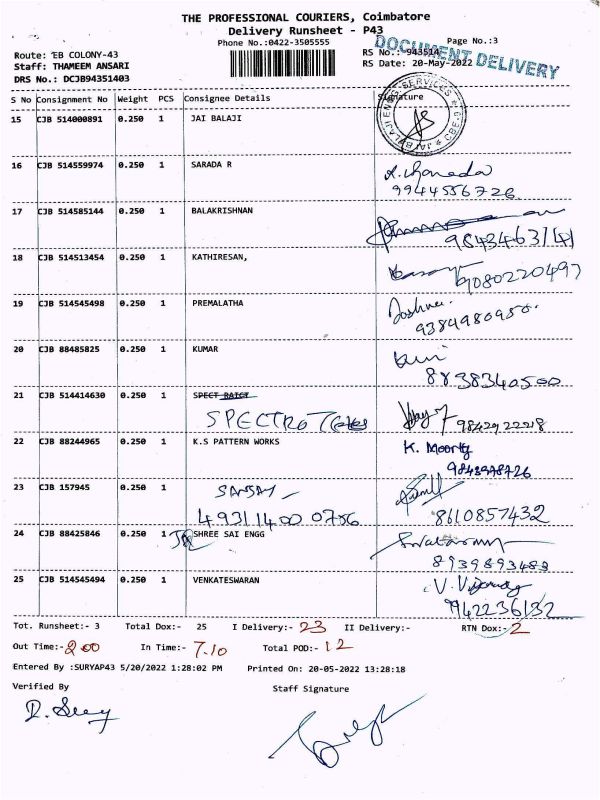 THE PROFESSIONAL COURIERS, Coimbatore
Delivery Runsheet - P43
Phone No.:0422-3505555
Page No.:3
Route: EB COLONY-43
RS No.:-943514
DOCUMENT DELIVERY
Staff: THAMEEM ANSARI
RS Date: 20-May-2022
DRS No.: DCJB94351403
S No Consignment No Weight PCS Consignee Details Signature
15 CJB 514000891 0.250 1 JAI BALAJI
16 CJB 514559974 0.250 1 SARADA R
9944556726
17 CJB 514585144 0.250 1 BALAKRISHNAN
9843463141
18 CJB 514513454 0.250 1 KATHIRESAN,
9080220497
19 CJB 514545498 0.250 1 PREMALATHA
9384980950
20 CJB 88485825 0.250 1 KUMAR
8838340500
21 CJB 514414630 0.250 1
SPECTRO
9842922218
22 CJB 88244965 0.250 1 K.S PATTERN WORKS K. Moorthy
9843978726
23 CJB 157945 0.250 1
4931140007 8610857432
24 CJB 88425846 0.250 1 SHREE SAI ENGG
8939893483
25 CJB 514545494 0.250 1 VENKATESWARAN
9942236132
Tot. Runsheet:- 3 Total Dox:- 25 I Delivery:- 23 II Delivery:- RTN Dox:- 2
Out Time:- 2.00 In Time:- 7.10 Total POD:- 12
Entered By :SURYAP43 5/20/2022 1:28:02 PM Printed On: 20-05-2022 13:28:18
Verified By Staff Signature